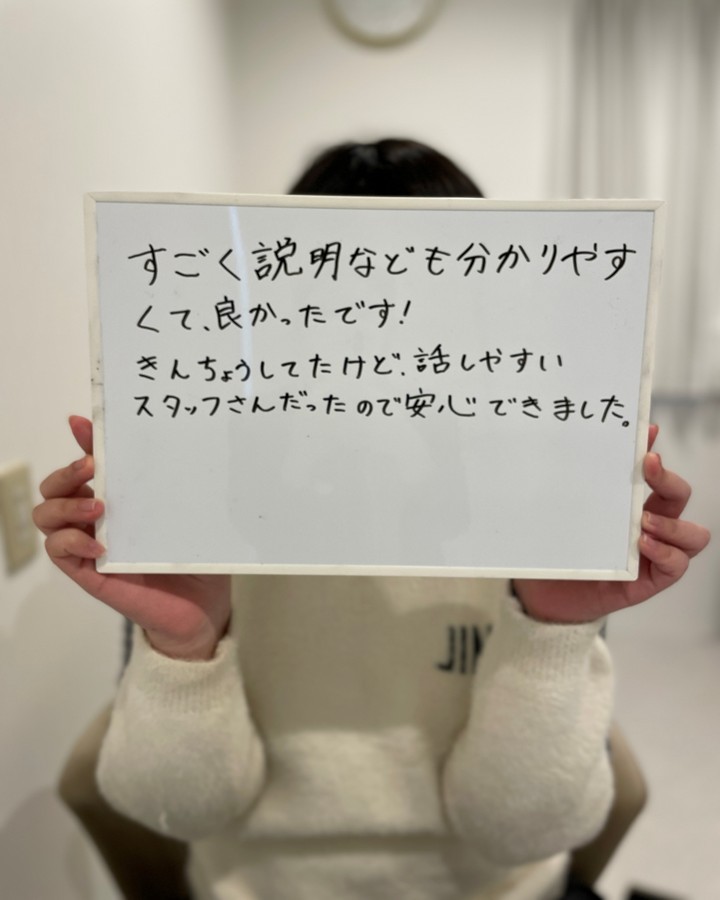 すごく説明なども分かりやす
くて、良かったです!
きんちょうしてたけど、話しやすい
スタッフさんだったので安心できました。
JIN